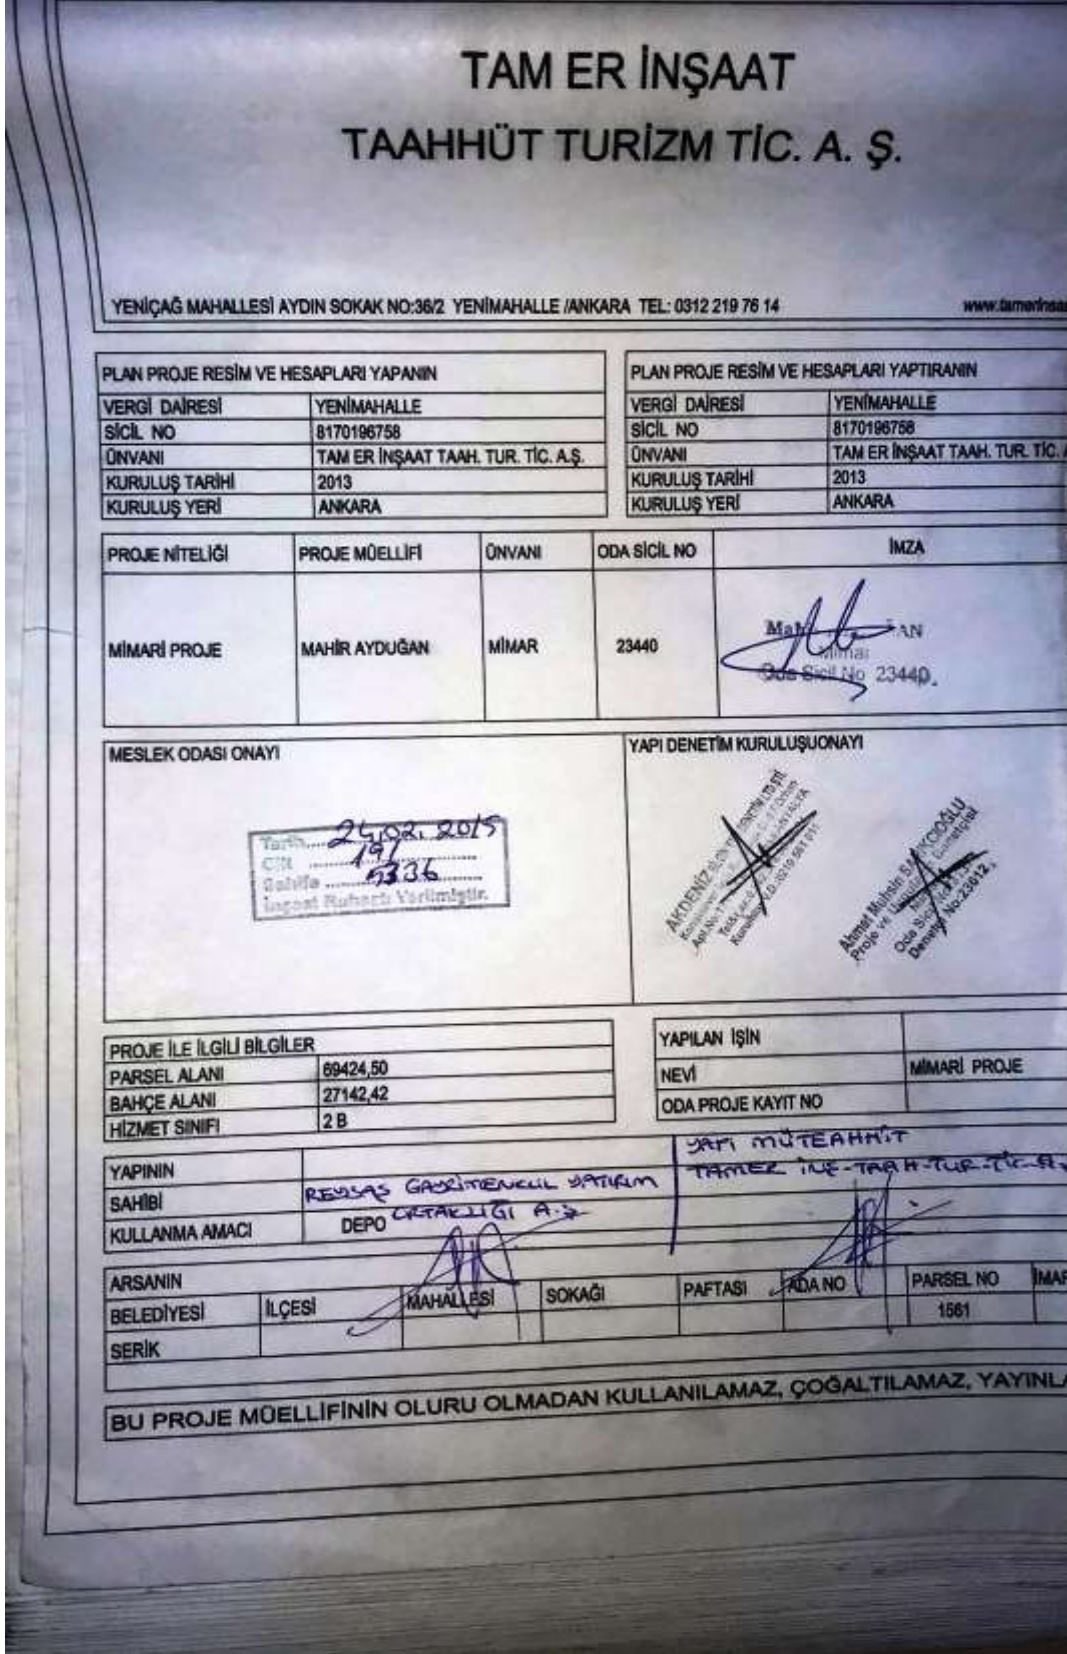 TAM ER İNŞAAT
TAAHHÜT TURİZM TİC. A. Ş.
YENİÇAĞ MAHALLESİ AYDIN SOKAK NO:36/2 YENİMAHALLE /ANKARA TEL: 0312 219 76 14
PLAN PROJE RESİM VE HESAPLARI YAPANIN
VERGİ DAİRESİ YENİMAHALLE
SİCİL NO 8170196758
ÜNVANI TAM ER İNŞAAT TAAH. TUR. TİC. A.Ş.
KURULUŞ TARİHİ 2013
KURULUŞ YERİ ANKARA
PLAN PROJE RESİM VE HESAPLARI YAPTIRANIN
VERGİ DAİRESİ YENİMAHALLE
SİCİL NO 8170196758
ÜNVANI TAM ER İNŞAAT TAAH. TUR. TİC.
KURULUŞ TARİHİ 2013
KURULUŞ YERİ ANKARA
PROJE NİTELİĞİ PROJE MÜELLİFİ ÜNVANI ODA SİCİL NO İMZA
MİMARİ PROJE MAHİR AYDUĞAN MİMAR 23440
Mimar
Oda Sicil No 23440
MESLEK ODASI ONAYI
Tarih 24.02.2015
Cilt 191
Sahife 5336
İnşaat Ruhsatı Verilmiştir.
YAPI DENETİM KURULUŞUONAYI
AKDENİZ
Ahmet Muhsin
Proje ve
Oda Sicil
Denetçi No:23012
PROJE İLE İLGİLİ BİLGİLER
PARSEL ALANI 69424,50
BAHÇE ALANI 27142,42
HİZMET SINIFI 2 B
YAPILAN İŞİN
NEVİ MİMARİ PROJE
ODA PROJE KAYIT NO
YAPININ
SAHİBİ REYSAŞ GAYRİMENKUL YATIRIM
ORTAKLIĞI A.Ş
KULLANMA AMACI DEPO
YAPI MÜTEAHHİT
TAMER İNŞ-TAAH-TUR-TİC-A.Ş
ARSANIN
BELEDİYESİ İLÇESİ MAHALLESİ SOKAĞI PAFTASI ADA NO PARSEL NO
SERİK 1561
BU PROJE MÜELLİFİNİN OLURU OLMADAN KULLANILAMAZ, ÇOĞALTILAMAZ,